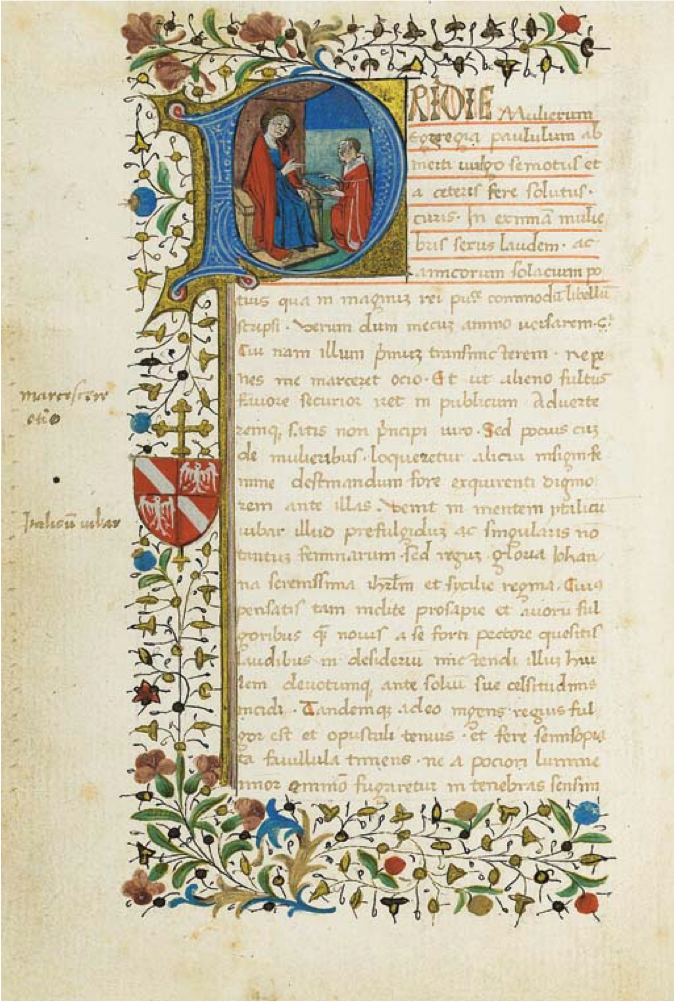 PRIDIE Mulierum
Egregia paululum ab
inerti vulgo semotus et
a ceteris fere solutus.
curis. In eximiā mulie
bris sexus laudem. ac
amicorum solacium po
tius qua in magnuz rei pu⁹ commodū libellū
scripsi. Verum dum mecuz animo versarem.
Cui nam illum p̄muz transmicterem. ne pe
nes me marceret ocio. Et ut alieno fultus
favore securior iret in publicum Adverte
remq; satis non p̄ncipi viro. Sed pocius cuz
de mulieribus. loqueretur alicui insigni fe
mine destinandum fore exquirenti digno
rem ante illas. Venit in mentem ytalicū
iubar illud prefulgiduz ac singularis no
tantuz feminarum. sed reguz gloria Iohan
na serenissima ihrlm et sycilie regina. Cuius
pensatis tam inclite prosapie et avorū ful
goribus q̄ novis a se forti pectore quesitis
laudibus in desideriū mictendi illuz hui
lem devotumq; ante soliū sue celsitudinis
incidi. Tandemq; adeo ingens regius ful
gor est et opusculi tenuis. et fere semisopi
ta favillula timens. ne a pociori lumine
minor omnīo fugaretur in tenebras sensim
marcescere
otio
Italicū iubar